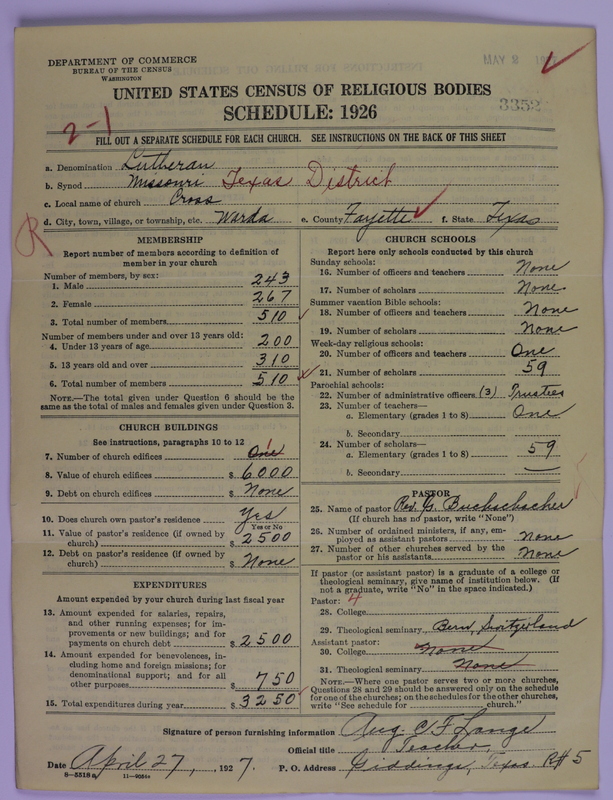 DEPARTMENT OF COMMERCE
BUREAU OF THE CENSUS
WASHINGTON
MAY 2
UNITED STATES CENSUS OF RELIGIOUS BODIES
SCHEDULE: 1926
3352
2-1
FILL OUT A SEPARATE SCHEDULE FOR EACH CHURCH. SEE INSTRUCTIONS ON THE BACK OF THIS SHEET
a. Denomination Lutheran
b. Synod Missouri Texas District
c. Local name of church Cross
d. City, town, village, or township, etc. Warda e. County Fayette f. State Texas
R
MEMBERSHIP
Report number of members according to definition of
member in your church
Number of members, by sex:
1. Male 243
2. Female 267
3. Total number of members 510
Number of members under and over 13 years old:
4. Under 13 years of age 200
5. 13 years old and over 310
6. Total number of members 510
NOTE.—The total given under Question 6 should be the
same as the total of males and females given under Question 3.
CHURCH BUILDINGS
See instructions, paragraphs 10 to 12
7. Number of church edifices One 1
8. Value of church edifices $ 6000
9. Debt on church edifices $ None
10. Does church own pastor's residence Yes
Yes or No
11. Value of pastor's residence (if owned by
church) $ 2500
12. Debt on pastor's residence (if owned by
church) $ None
EXPENDITURES
Amount expended by your church during last fiscal year
13. Amount expended for salaries, repairs,
and other running expenses; for im-
provements or new buildings; and for
payments on church debt $ 2500
14. Amount expended for benevolences, in-
cluding home and foreign missions; for
denominational support; and for all
other purposes $ 750
15. Total expenditures during year $ 3250
CHURCH SCHOOLS
Report here only schools conducted by this church
Sunday schools:
16. Number of officers and teachers None
17. Number of scholars None
Summer vacation Bible schools:
18. Number of officers and teachers None
19. Number of scholars None
Week-day religious schools:
20. Number of officers and teachers One
21. Number of scholars 59
Parochial schools:
22. Number of administrative officers (3) Trustees
23. Number of teachers—
a. Elementary (grades 1 to 8) One
b. Secondary
24. Number of scholars—
a. Elementary (grades 1 to 8) 59
b. Secondary —
PASTOR
25. Name of pastor Rev. G. Buchschacher
(If church has no pastor, write "None")
26. Number of ordained ministers, if any, em-
ployed as assistant pastors None
27. Number of other churches served by the
pastor or his assistants None
If pastor (or assistant pastor) is a graduate of a college or
theological seminary, give name of institution below. (If
not a graduate, write "No" in the space indicated.)
Pastor: 4
28. College
29. Theological seminary Bern, Switzerland
Assistant pastor:
30. College None
31. Theological seminary None
NOTE.—Where one pastor serves two or more churches,
Questions 28 and 29 should be answered only on the schedule
for one of the churches; on the schedules for the other churches,
write "See schedule for church."
Signature of person furnishing information Aug. C. F. Lange
Official title Teacher
Date April 27, 1927. P. O. Address Giddings, Texas. R#5